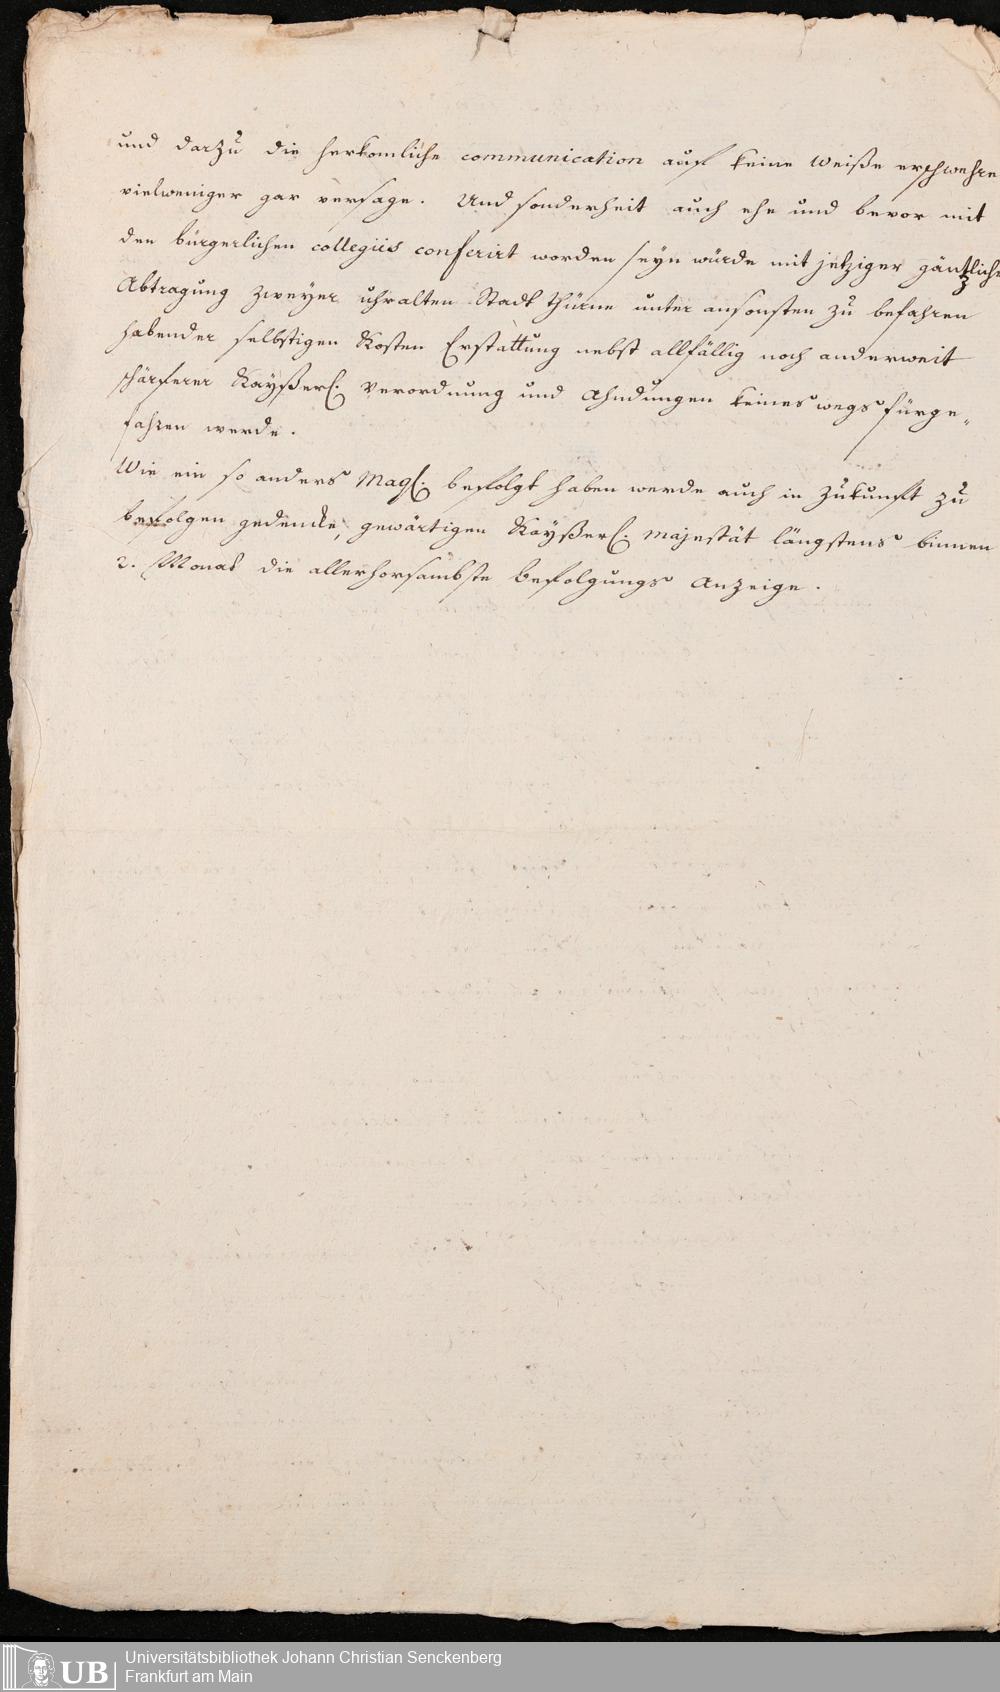 und darzu die herkomliche communication auf keine Weiße erschwehre
vielweniger gar versage. Und sonderheit auch ehe und bevor mit
den bürgerlichen collegiis conferirt worden seyn würde mit jetziger gäntzliche
Abtragung zweyer uhralten Stadt Thürne unter ansonsten zu befahren
habender selbstigen Kosten Erstattung nebst allfällig noch anderweit
schärferer Kayßerl. Verordnung und Ahndungen keines wegs fürge„
fahren werde.
Wie ein so anders Magl. befolgt haben werde auch in Zukunft zu
befolgen gedencke, gewärtigen Kayßerl. Majestät längstens binnen
2. Monat die allerhorsambste befolgungs Anzeige.
UB
Universitätsbibliothek Johann Christian Senckenberg
Frankfurt am Main